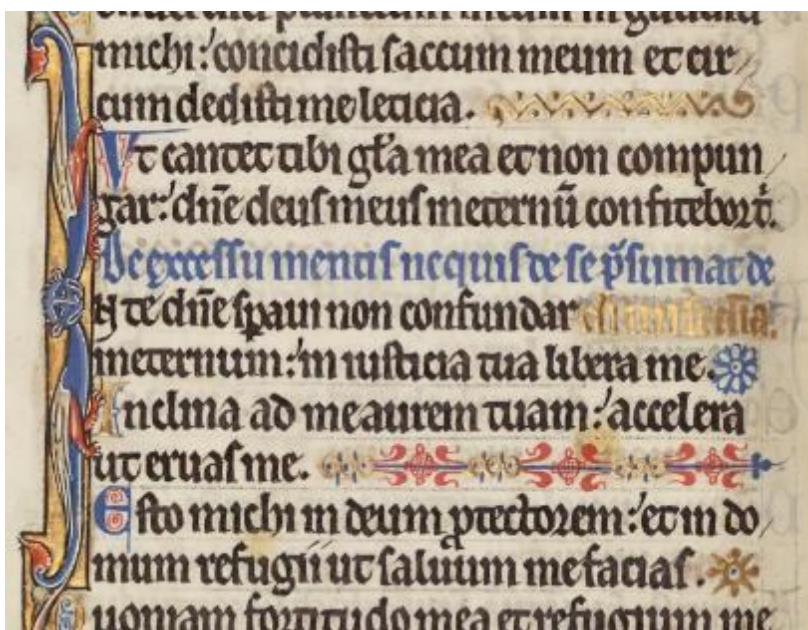 michi : concidisti saccum meum et cir
cum dedisti me leticia.
Vt cantet tibi gła mea et non compun
gar : dñe deus meus ineternũ confitebor t.
De excessu mentis ne quis de se p̃sumat de
N te dñe spaui non confundar
ineternum : in iusticia tua libera me.
Inclina ad me aurem tuam : accelera
ut eruas me.
Esto michi in deum ꝓtectorem : et in do
mum refugii ut saluum me facias.
uoniam fortitudo mea et refugium me